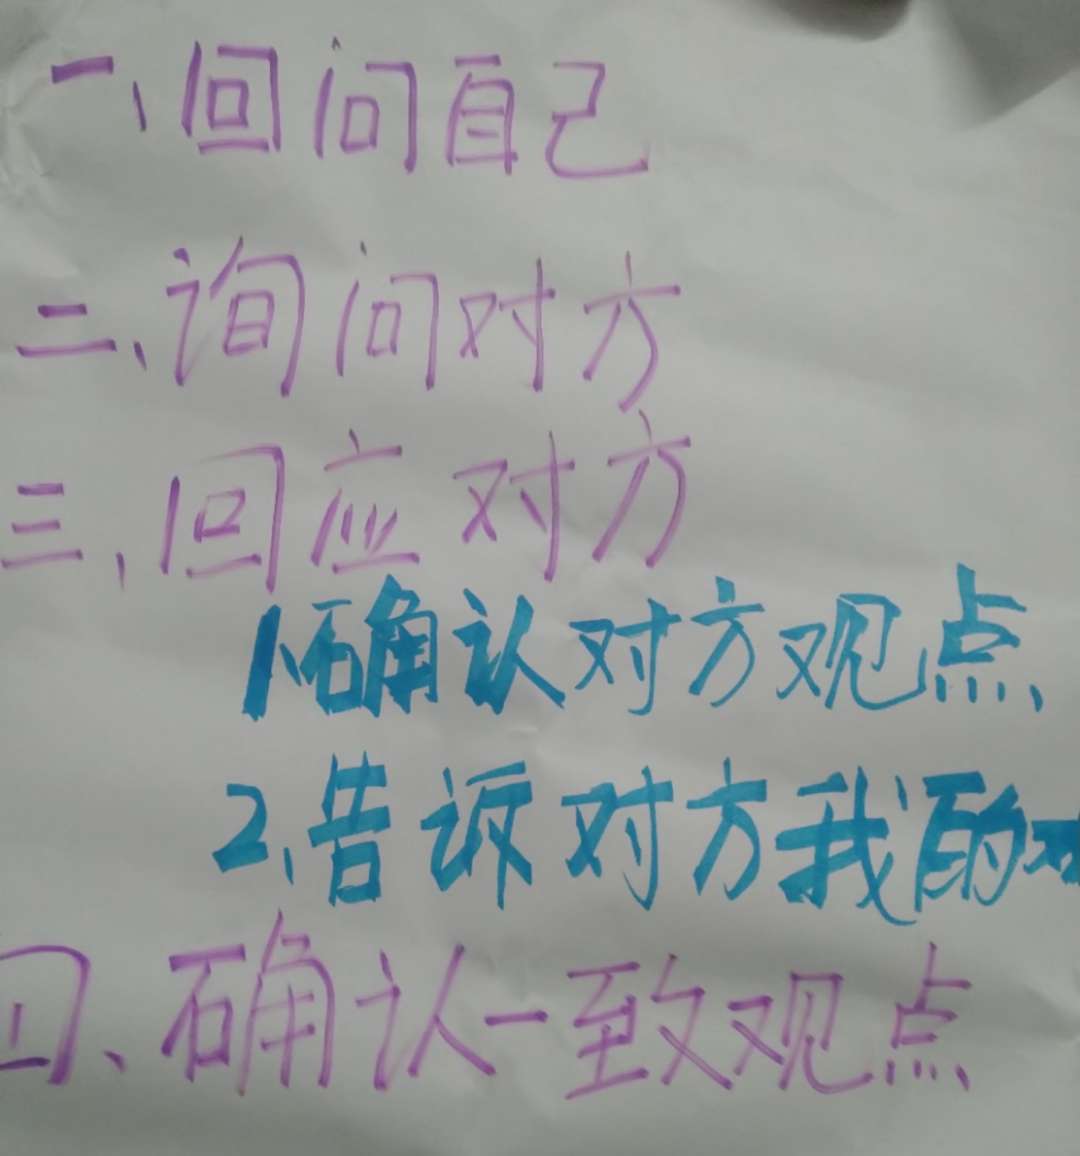 一、回问自己
二、询问对方
三、回应对方
1、确认对方观点、
2、告诉对方我的
四、确认一致观点